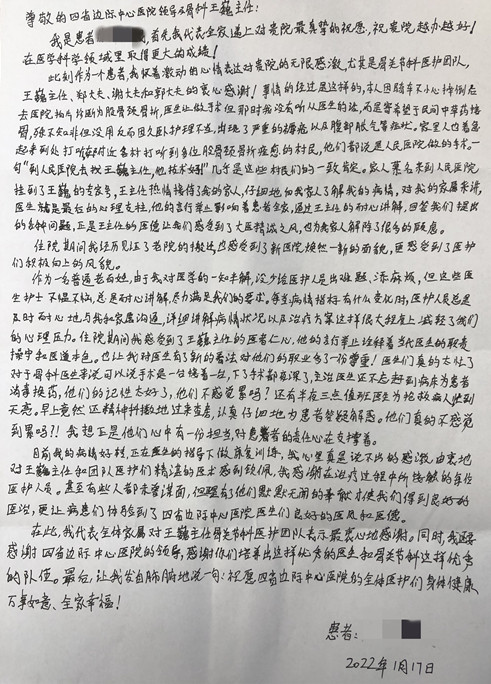 尊敬的四省边际中心医院领导及骨科王巍主任：
我是患者 首先我代表全家递上对贵院最真挚的祝愿，祝贵院越办越好！
在医学科学领域里取得更大的成绩！
此刻作为一个患者，我怀着激动的心情表达对贵院的无限感激，尤其是骨关节科医护团队，
王巍主任、郑大夫、谢大夫和郭大夫的衷心感谢！事情的经过是这样的，本人因骑车不小心摔倒后
去医院，拍片诊断为股骨颈骨折，医生让做手术但那时我没有听从医生的话，而是寄希望于民间中草药接
骨，殊不知非但没用反而因久卧护理不当，出现了严重的褥疮以及腹部胀气等症状。家里人也着急
起来到处打听在附近各村打听到多位股骨颈骨折痊愈的村民，他们都说是人民医院做的手术。一
句“到人民医院去找王巍主任，他技术好！”几乎是这些村民们的一致肯定。家人慕名来到人民医院
挂到了王巍的专家号，王主任热情接待我的家人，仔细地向我家人了解我的病情，对我的家属来讲，
医生就是最后的心理支柱，他的言行举止影响着患者全家，通过王主任的耐心讲解，回答我们提出
的各种问题，正是王主任的医德让我们感受到了大医精诚之风，也为我家人解除了很多的顾虑。
住院期间我经历见证了老院的搬迁也感受到了新医院焕然一新的面貌，更感受到了医护
们积极向上的风貌。
作为一名普通老百姓，由于我对医学的一知半解，没少给医护人员出难题、添麻烦，但这些医
生护士不愠不恼，总是耐心讲解，尽力满足我们的要求。每当病情指标有什么变化时，医护人员总是
及时耐心地与我和家属沟通，详细讲解病情状况以及治疗方案这样很大程度上减轻了我们
的心理压力。住院期间我感受到了王巍主任的医者仁心，他的言行举止诠释着当代医生的职责
操守和医道本色。也让我对医生有了新的看法对他们的职业多了一份尊重！医生们真的太忙了
对于骨科医生来说可以说手术是一台接着一台，下了手术都夜深了，主治医生还不忘赶到病床为患者
清掌换药，他们的记性太好了，他们不感觉累吗？还有半夜三点值班医生为抢救病人忙到
天亮。早上竟然还精神抖擞地过来查看，认真仔细地为患者答疑解惑。他们真的不感觉
到累吗？！我想正是他们心中有一份担当，对患患者的责任心在支撑着。
目前我的病情好转，正在医生的指导下做康复训练，我心里真是说不出的感激，由衷地
对王巍主任和团队医护们精湛的医术感到钦佩，我感谢在治疗过程中所接触的每位
医护人员。甚至有些人都未曾谋面，但唯有了他们默默无闻的奉献才使我们得到良好的
医治，更让病患们体验到了四省边际中心医院医生们良好的医风和医德。
在此，我代表全体家属对王巍主任骨关节科医护团队表示最衷心地感谢。同时，我还要
感谢四省边际中心医院的领导，感谢你们培养出这样优秀的医生和骨关节科这样优秀
的队伍。最后，让我发自肺腑地说一句：祝愿四省边际中心医院的全体医护们身体健康
万事如意、全家幸福！
患者：
2022年1月17日